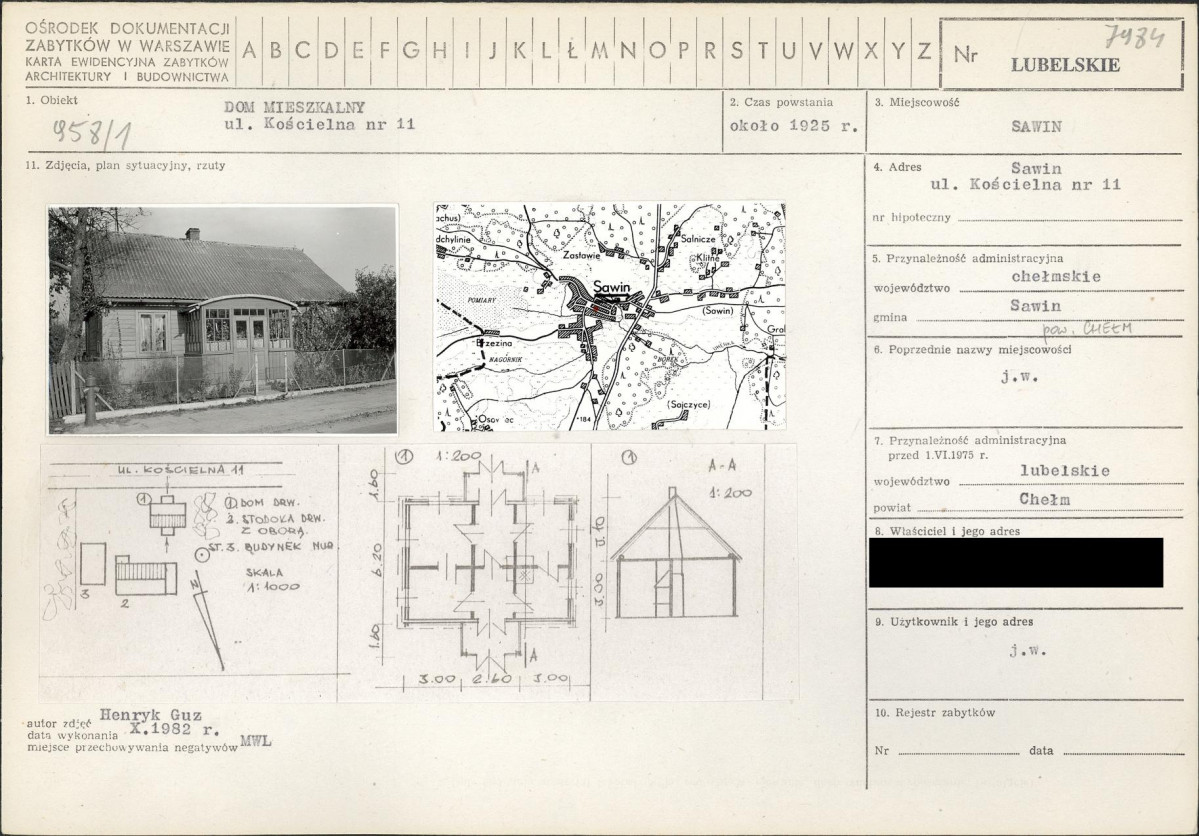 OŚRODEK DOKUMENTACJI
ZABYTKÓW W WARSZAWIE
KARTA EWIDENCYJNA ZABYTKÓW
ARCHITEKTURY I BUDOWNICTWA
A B C D E F G H I J K L Ł M N O P R S T U V W X Y Z
Nr
7984
LUBELSKIE
1. Obiekt
DOM MIESZKALNY
ul. Kościelna nr 11
958/1
2. Czas powstania
około 1925 r.
3. Miejscowość
SAWIN
11. Zdjęcia, plan sytuacyjny, rzuty
4. Adres
Sawin
ul. Kościelna nr 11
nr hipoteczny
5. Przynależność administracyjna
województwo chełmskie
gmina Sawin
pow. CHEŁM
6. Poprzednie nazwy miejscowości
j.w.
7. Przynależność administracyjna
przed 1.VI.1975 r.
województwo lubelskie
powiat Chełm
8. Właściciel i jego adres
9. Użytkownik i jego adres
j.w.
10. Rejestr zabytków
Nr data
achus)
dchylinie
Zastawie
Salnicze
Klitne
POMIARY
Sawin
(Sawin)
Brzezina
NAGÓRNIK
BOREK
Grab
(Sajczyce)
184
UL. KOŚCIELNA 11
1
1 DOM DRW.
2. STODOŁA DRW.
Z OBORĄ
ST. 3. BUDYNEK MUR.
SKALA
1:1000
N
3
2
1 1:200
A
1.60
6.20
1.60
A
3.00 2.60 3.00
1
A-A
1:200
3.00
autor zdjęć Henryk Guz
data wykonania X.1982 r.
miejsce przechowywania negatywów MWL